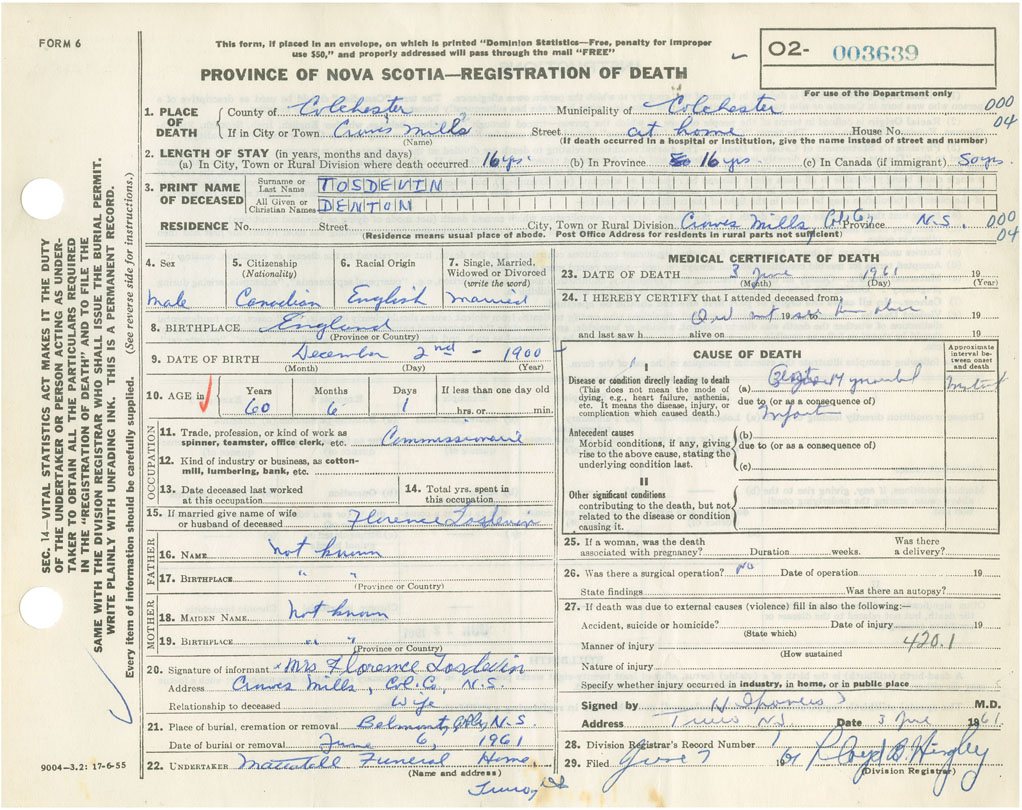 FORM 6
This form, if placed in an envelope, on which is printed "Dominion Statistics—Free, penalty for improper
use $50," and properly addressed will pass through the mail "FREE"
O2- 003639
PROVINCE OF NOVA SCOTIA—REGISTRATION OF DEATH
For use of the Department only
1. PLACE OF DEATH County of Colchester Municipality of Colchester 000
If in City or Town Crowes Mills Street at home House No. 04
(Name) (If death occurred in a hospital or institution, give the name instead of street and number)
2. LENGTH OF STAY (in years, months and days)
(a) In City, Town or Rural Division where death occurred 16 yrs. (b) In Province 16 yrs (c) In Canada (if immigrant) 50 yrs.
3. PRINT NAME OF DECEASED Surname or Last Name TOSDEVIN
All Given or Christian Names DENTON
RESIDENCE No. Street City, Town or Rural Division Crowes Mills, Col. Co. Province N.S. 000
(Residence means usual place of abode. Post Office Address for residents in rural parts not sufficient) 04
4. Sex 5. Citizenship (Nationality) 6. Racial Origin 7. Single, Married, Widowed or Divorced (write the word)
Male Canadian English Married
8. BIRTHPLACE England
(Province or Country)
9. DATE OF BIRTH December 2nd - 1900
(Month) (Day) (Year)
10. AGE in Years Months Days If less than one day old
60 6 1 hrs. or min.
OCCUPATION
11. Trade, profession, or kind of work as spinner, teamster, office clerk, etc. Commissionaire
12. Kind of industry or business, as cotton-
mill, lumbering, bank, etc.
13. Date deceased last worked at this occupation
14. Total yrs. spent in this occupation
15. If married give name of wife or husband of deceased Florence Tosdevin
FATHER
16. NAME Not known
17. BIRTHPLACE " "
(Province or Country)
MOTHER
18. MAIDEN NAME Not known
19. BIRTHPLACE " "
(Province or Country)
20. Signature of informant x Mrs Florence Tosdevin
Address Crowes Mills, Col. Co., N.S.
Relationship to deceased Wife
21. Place of burial, cremation or removal Belmont, N.S.
Date of burial or removal June 6, 1961
22. UNDERTAKER Mattatall Funeral Home,
(Name and address)
Truro,
MEDICAL CERTIFICATE OF DEATH
23. DATE OF DEATH 3 June 1961 19
(Month) (Day) (Year)
24. I HEREBY CERTIFY that I attended deceased from
Did not 19
and last saw h alive on 19
CAUSE OF DEATH
Approximate interval between onset and death
I
Disease or condition directly leading to death (a) Myocardial
(This does not mean the mode of dying, e.g., heart failure, asthenia, etc. It means the disease, injury, or complication which caused death.)
due to (or as a consequence of)
Infarction
Antecedent causes (b)
Morbid conditions, if any, giving rise to the above cause, stating the underlying condition last.
due to (or as a consequence of)
(c)
II
Other significant conditions
contributing to the death, but not related to the disease or condition causing it.
25. If a woman, was the death associated with pregnancy? Duration weeks. Was there a delivery?
26. Was there a surgical operation? No Date of operation 19
State findings Was there an autopsy?
27. If death was due to external causes (violence) fill in also the following:—
Accident, suicide or homicide? Date of injury 19
(State which)
Manner of injury 420.1
(How sustained)
Nature of injury
Specify whether injury occurred in industry, in home, or in public place
Signed by M.D.
Address Truro NS Date 3 June 1961
28. Division Registrar's Record Number 1
29. Filed June 7 1961 Lloyd B. Hingley
(Division Registrar)
SEC. 14—VITAL STATISTICS ACT MAKES IT THE DUTY
OF THE UNDERTAKER OR PERSON ACTING AS UNDER-
TAKER TO OBTAIN ALL THE PARTICULARS REQUIRED
IN THE "REGISTRATION OF DEATH" AND TO FILE THE
SAME WITH THE DIVISION REGISTRAR WHO SHALL ISSUE THE BURIAL PERMIT.
WRITE PLAINLY WITH UNFADING INK. THIS IS A PERMANENT RECORD.
Every item of information should be carefully supplied. (See reverse side for instructions.)
9004—3.2: 17-6-55